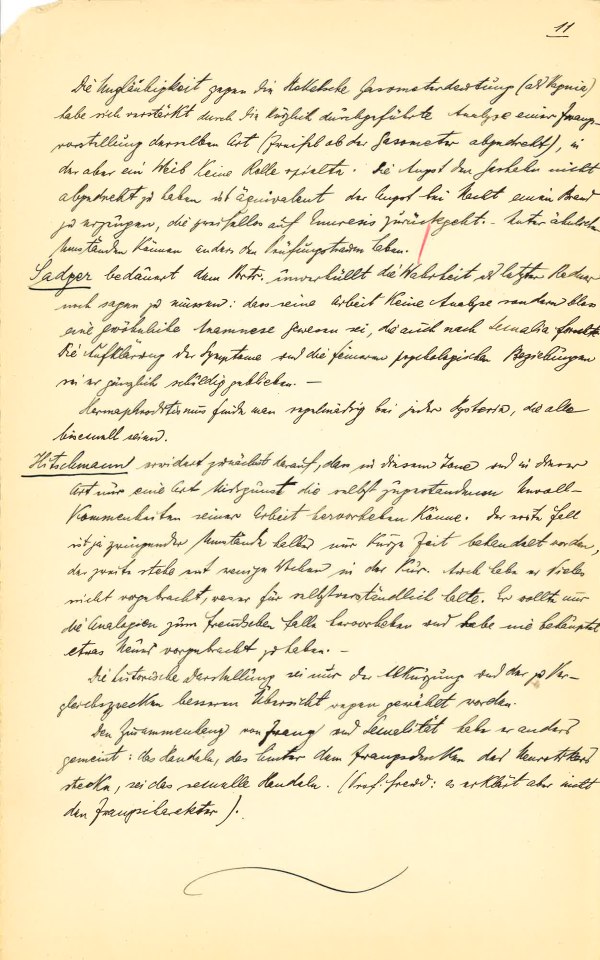 11
Die Ungläubigkeit gegen die Stekelsche Gasometerdeutung (als Vagina)
habe sich verstärkt durch die kürzlich durchgeführte Analyse einer Zwangs-
vorstellung derselben Art (Zweifel ob der Gasometer abgedreht), in
der aber ein Weib keine Rolle spielte. Die Angst den Gashahn nicht
abgedreht zu haben ist äquivalent der Angst bei Nacht einen Brand
zu erzeugen, die zweifellos auf Enuresis zurückgeht. – Unter ähnlichen
Umständen können andere den Prüfungstraum haben.
Sadger bedauert dem Vortr. unverhüllt die Wahrheit als letzter Redner
noch sagen zu müssen: dass seine Arbeit keine Analyse sondern bloss
eine gewöhnliche Anamnese gewesen sei, die auch nach Sexualia
Die Aufklärung der Symptome und die feineren psychologischen Beziehungen
sei er gänzlich schuldig geblieben. –
Hermaphroditismus finde man regelmässig bei jeder Hysterie, die alle
bisexuell seien.
Hitschmann erwidert zunächst darauf, dass in diesem Tone und in dieser
Art nur eine Art Missgunst die selbst zugestandenen Unvoll-
kommenheiten seiner Arbeit hervorheben könne. Der erste Fall
ist ja zwingender Umstände halber nur kurze Zeit behandelt worden,
der zweite stehe erst wenige Wochen in der Kur. Auch habe er Vieles
nicht vorgebracht, was er für selbstverständlich halte. Er wollte nur
die Analogien zum Freudschen Falle hervorheben und habe nie behauptet
etwas Neues vorgebracht zu haben. –
Die historische Darstellung sei nur der Abkürzung und der zu Ver-
gleichszwecken besseren Übersicht wegen gewählt worden.
Den Zusammenhang von Zwang und Sexualität habe er anders
gemeint: das Handeln, das hinter dem Zwangsdenken des Neurotikers
stecke, sei das sexuelle Handeln. (Prof. Freud: es erklärt aber nicht
den Zwangscharakter).